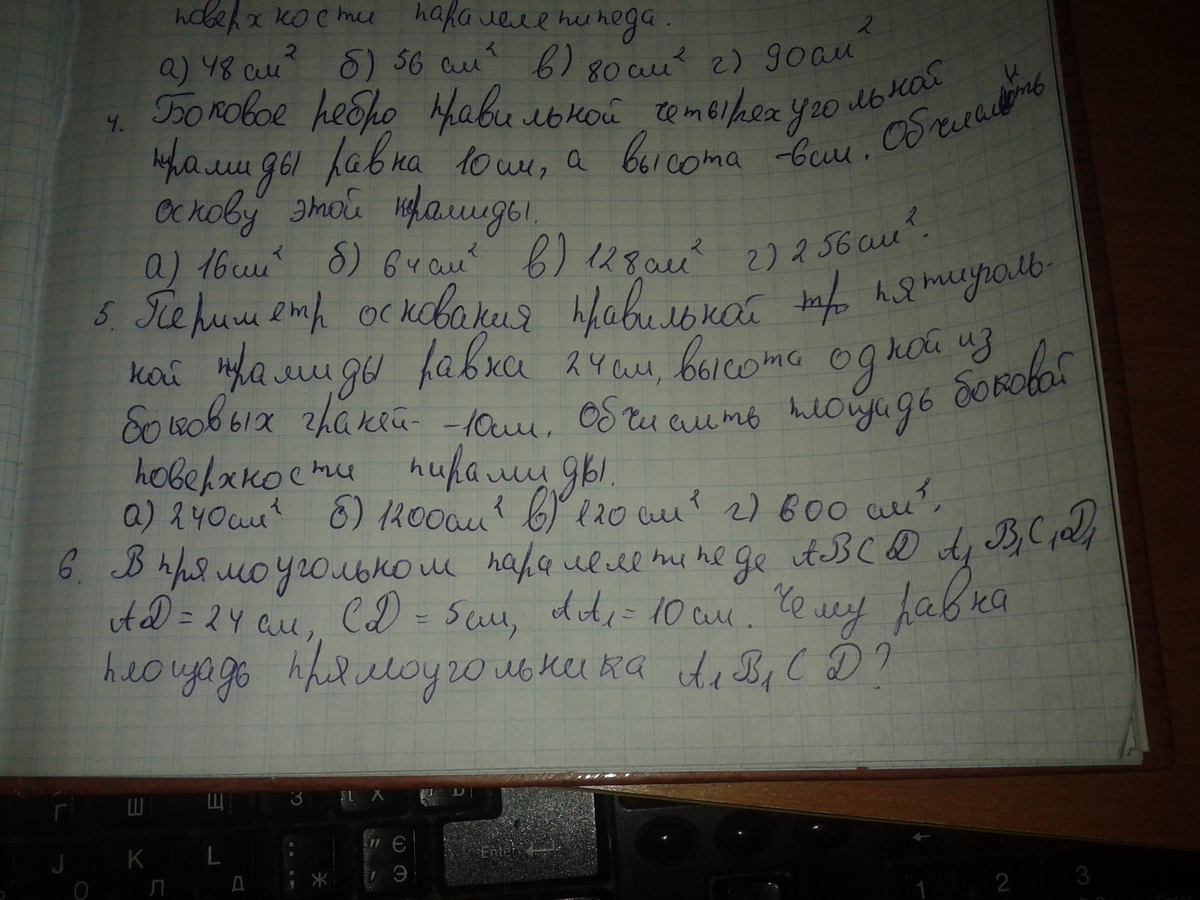 поверхности паралелепипеда.
а) 48 см² б) 56 см² в) 80 см² г) 90 см²
4. Боковое ребро правильной четырехугольной
прамиды равна 10 см, а высота -6 см. Обчислить
основу этой прамиды.
а) 16 см² б) 64 см² в) 128 см² г) 256 см².
5. Периметр основания правильной пятиуголь-
ной прамиды равна 24 см, высота одной из
боковых граней- -10 см. Обчислить площадь боковой
поверхности пирамиды.
а) 240 см² б) 1200 см² в) 120 см² г) 600 см².
6. В прямоугольном паралелепипеде ABCD A₁B₁C₁D₁
AD = 24 см, CD = 5 см, AA₁ = 10 см. Чему равна
площадь прямоугольника A₁B₁CD?
Ґ Ш Щ З Х
J О K Л L Д : ; Ж " Є , Э Enter ←
1 2 3